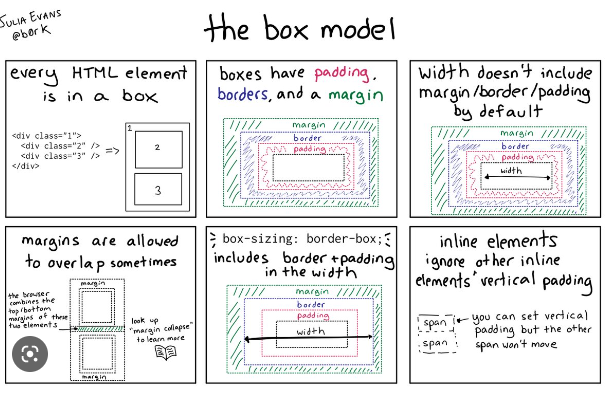 JULIA EVANS
@b0rk
the box model
every HTML element
is in a box
<div class="1">
<div class="2" />
<div class="3" />
</div>
=>
1
2
3
boxes have padding,
borders, and a margin
margin
border
padding
width doesn't include
margin/border/padding
by default
margin
border
padding
width
margins are allowed
to overlap sometimes
the browser
combines the
top/bottom
margins of these
two elements
margin
margin
look up
"margin collapse"
to learn more
box-sizing: border-box;
includes border + padding
in the width
margin
border
padding
width
inline elements
ignore other inline
elements' vertical padding
span
span
you can set vertical
padding but the other
span won't move